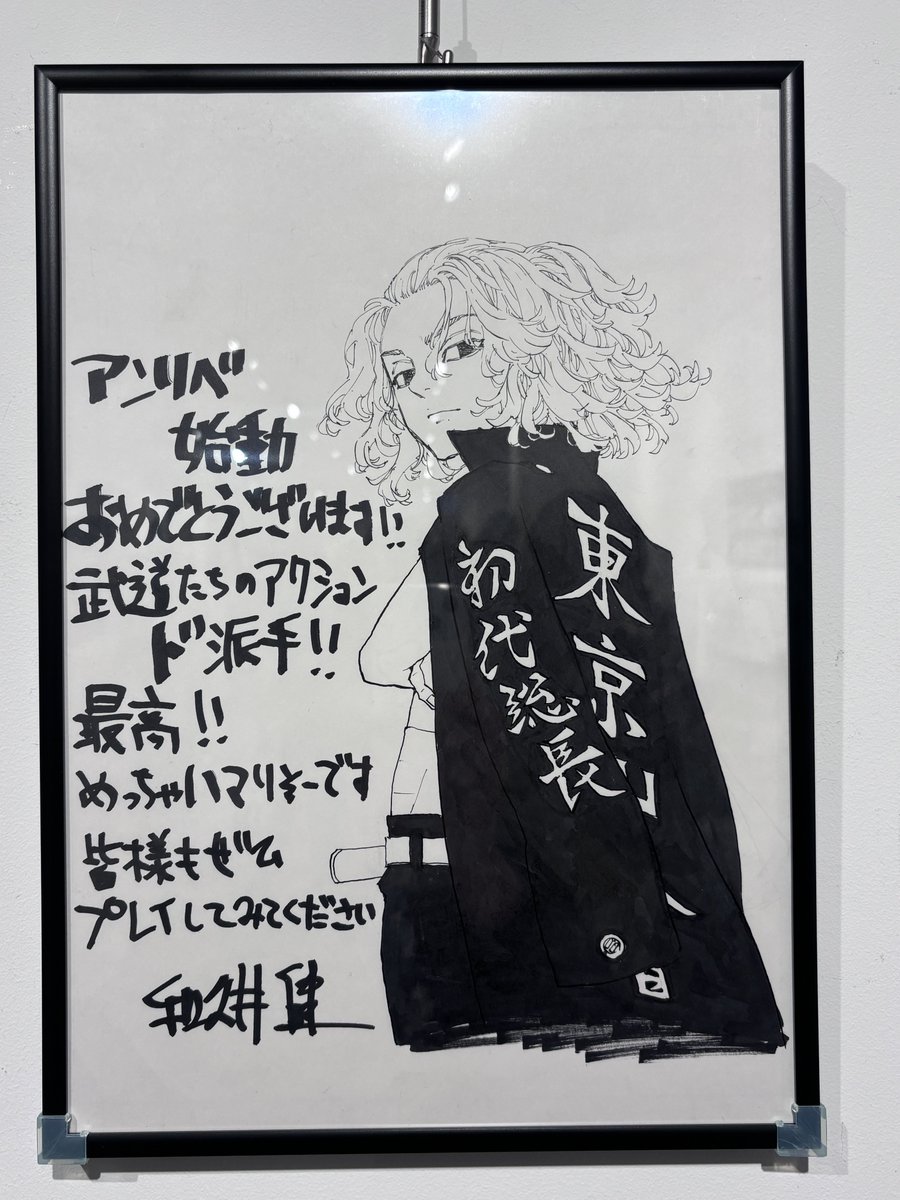 アンリベ
始動
おめでとうございます!!
武道たちのアクション
ド派手!!
最高!!
めっちゃハマりそーです
皆様もぜひ
プレイしてみてください
和久井健
初代総長
東京